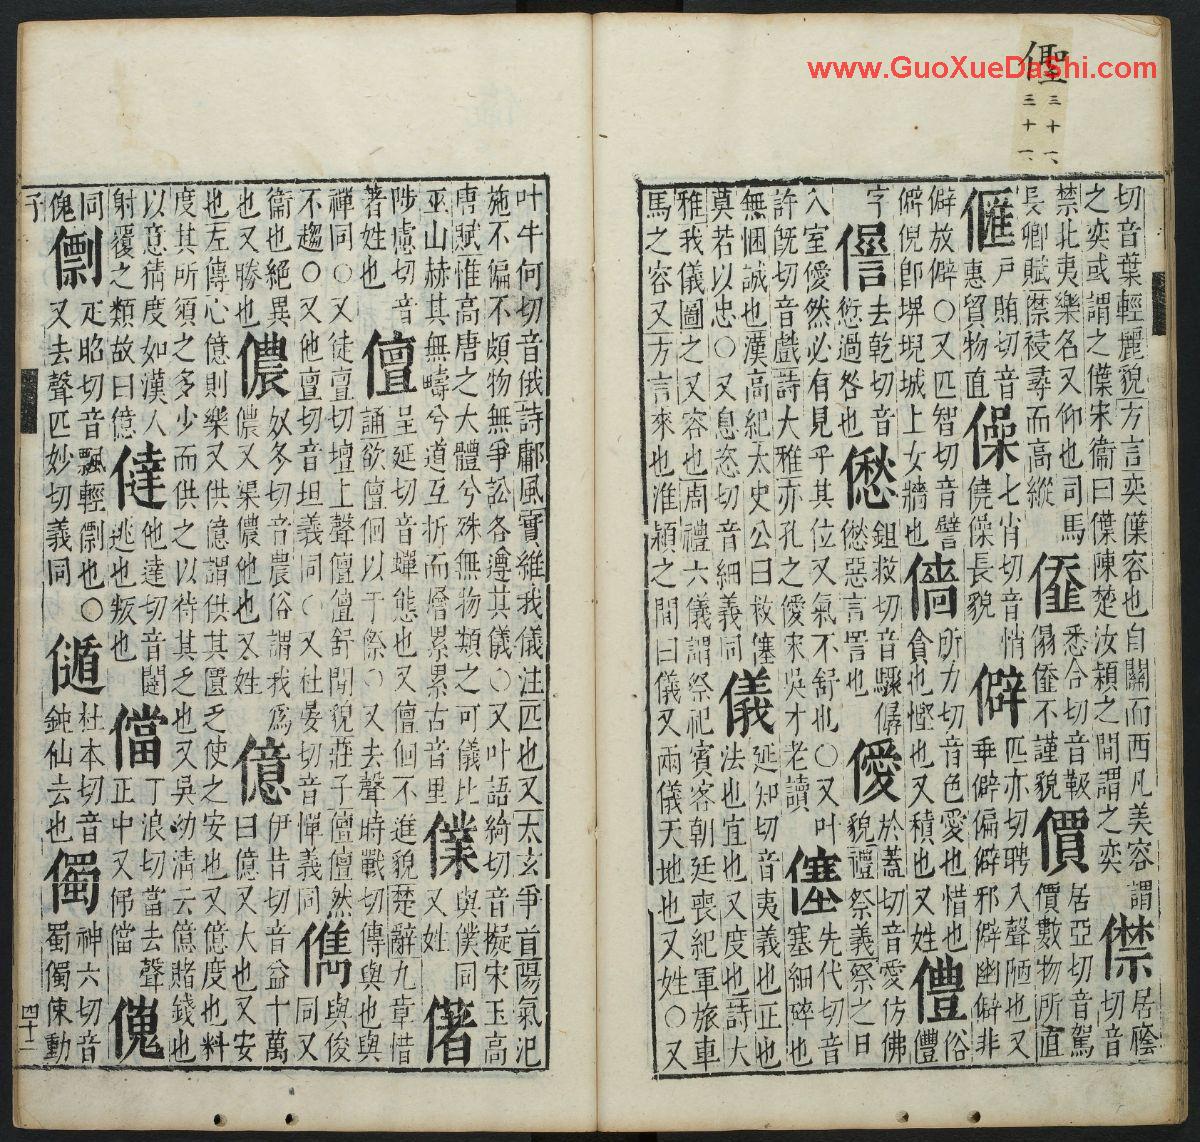 www.GuoXueDaShi.com
三十一
三十一
切音葉輕麗貌方言奕僷容也自關而西凡美容謂
之奕或謂之僷宋衞曰僷陳楚汝潁之間謂之奕
僸居廕切音
禁北夷樂名又仰也司馬
長卿賦僸祲尋而高縱
悉合切音靸
儑不謹貌
價居亞切音駕
價數物所直
匯戶賄切音
惠貿物直
僺七肖切音悄
僥僺長貌
僻匹亦切聘入聲陋也又
垂僻偏僻邪僻幽僻非
僻放僻〇又匹智切音譬
僻倪卽堺堄城上女牆也
所力切音色愛也惜也
貪也慳也又積也又姓
俗
禮字
去乾切音
愆過咎也
鉏救切音驟僝
僽惡言詈也
僾於蓋切音愛仿佛
貌禮祭義祭之日
入室僾然必有見乎其位又氣不舒也〇又叶
許旣切音戲詩大雅亦孔之僾宋吳才老讀
僿先代切音
塞細碎也
無悃誠也漢高紀太史公曰救僿
莫若以忠〇又息恣切音細義同
儀延知切音夷義也正也
法也宜也又度也詩大
雅我儀圖之又容也周禮六儀謂祭祀賓客朝廷喪紀軍旅車
馬之容又方言來也淮潁之間曰儀又兩儀天地也又姓〇又
叶牛何切音俄詩鄘風實維我儀注匹也又太玄爭首陽氣汜
施不偏不頗物無爭訟各遵其儀〇又叶語綺切音擬宋玉高
唐賦惟高唐之大體兮殊無物類之可儀比
巫山赫其無疇兮道互折而層累累古音里
僕與僕同
又姓
陟慮切音
著姓也
儃呈延切音蟬態也又儃佪不進貌楚辭九章惜
誦欲儃佪以干傺〇又去聲時戰切傳與也與
禪同〇又徒亶切壇上聲儃儃舒閒貌莊子儃儃然
不趨〇又他亶切音坦義同〇又杜晏切音憚義同
儁與俊
同又
衞也絕異
也又勝也
儂奴冬切音農俗謂我爲
儂又渠儂他也又姓
億伊昔切音益十萬
曰億又大也又安
也左傳心億則樂又供億謂供其匱乏使之安也又億度也料
度其所須之多少而供之以待其乏也又吳幼清云億賭錢也
以意猜度如漢人
射覆之類故曰億
他達切音闥
逃也叛也
儅丁浪切當去聲
正中又俤儅
同傀
僄疋昭切音飄輕僄也〇
又去聲匹妙切義同
杜本切音
鈍仙去也
神六切音
蜀儥倲動
四十二